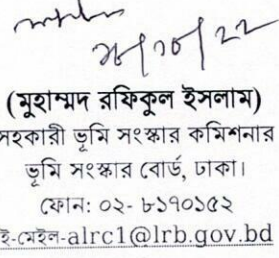 ২৮/১০/২২
(মুহাম্মদ রফিকুল ইসলাম)
সহকারী ভূমি সংস্কার কমিশনার
ভূমি সংস্কার বোর্ড, ঢাকা।
ফোন: ০২- ৮১৭০১৫২
ই-মেইল-alrc1@lrb.gov.bd